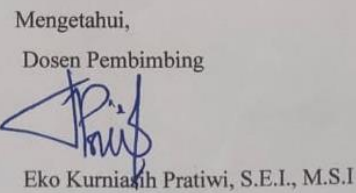 Mengetahui,
Dosen Pembimbing
Eko Kurniasih Pratiwi, S.E.I., M.S.I